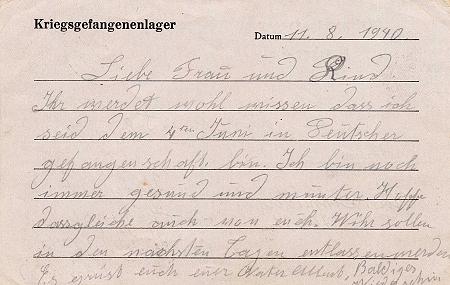 Kriegsgefangenenlager
Datum 11. 8. 1940.
Liebe Frau und Kind
Ihr werdet wohl wissen dass ich
seid dem 4ten Juni in Deutscher
gefangenschaft. bin. Ich bin noch
immer gesund und munter. Hoffe
dassgleiche auch von euch. Wihr sollen
in den nächsten Tagen entlassen werden
Es grüst euch euer Vater Albert, Baldiges